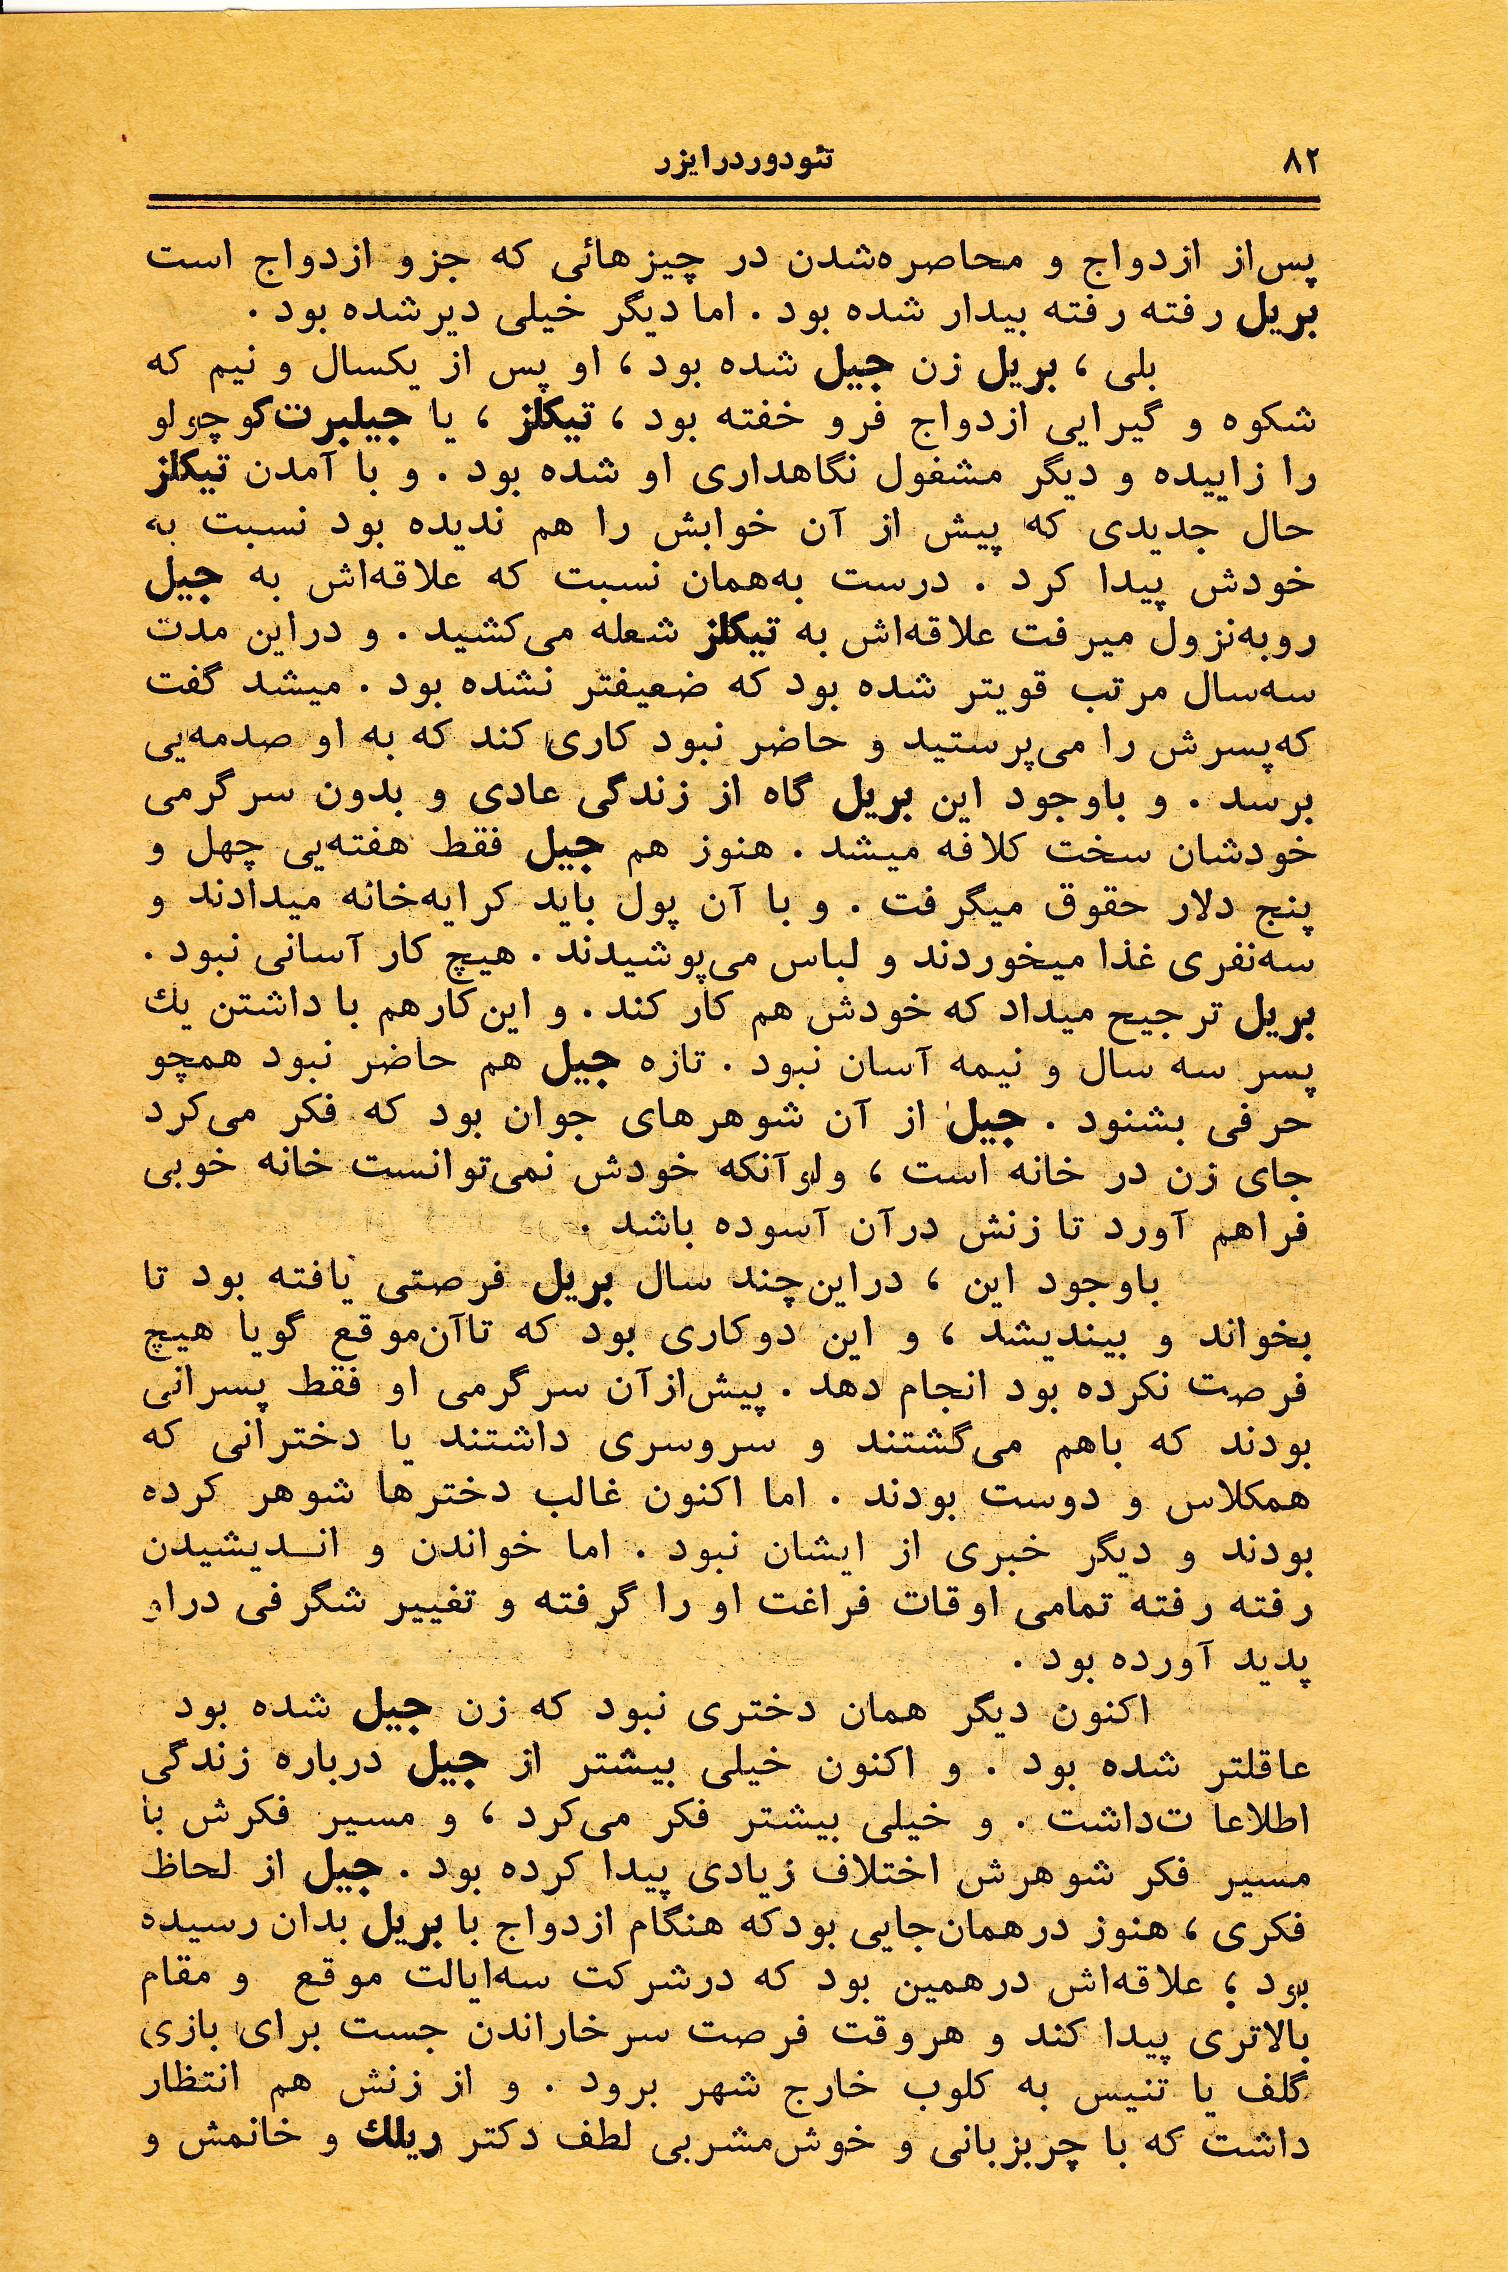 ۸۲
تئودوردرایزر
پس‌از ازدواج و محاصره‌شدن در چیزهائی که جزو ازدواج است
بریل رفته رفته بیدار شده بود . اما دیگر خیلی دیرشده بود .
بلی ، بریل زن جیل شده بود ، او پس از یکسال و نیم که
شکوه و گیرایی ازدواج فرو خفته بود ، تیکلز ، یا جیلبرت‌کوچولو
را زاییده و دیگر مشغول نگاهداری او شده بود . و با آمدن تیکلز
حال جدیدی که پیش از آن خوابش را هم ندیده بود نسبت به
خودش پیدا کرد . درست به‌همان نسبت که علاقه‌اش به جیل
روبه‌نزول میرفت علاقه‌اش به تیکلز شعله می‌کشید . و دراین مدت
سه‌سال مرتب قویتر شده بود که ضعیفتر نشده بود . میشد گفت
که‌پسرش را می‌پرستید و حاضر نبود کاری کند که به او صدمه‌یی
برسد . و باوجود این بریل گاه از زندگی عادی و بدون سرگرمی
خودشان سخت کلافه میشد . هنوز هم جیل فقط هفته‌یی چهل و
پنج دلار حقوق میگرفت . و با آن پول باید کرایه‌خانه میدادند و
سه‌نفری غذا میخوردند و لباس می‌پوشیدند . هیچ کار آسانی نبود .
بریل ترجیح میداد که خودش هم کار کند . و این‌کارهم با داشتن یك
پسر سه سال و نیمه آسان نبود . تازه جیل هم حاضر نبود همچو
حرفی بشنود . جیل از آن شوهرهای جوان بود که فکر می‌کرد
جای زن در خانه است ، ولوآنکه خودش نمی‌توانست خانه خوبی
فراهم آورد تا زنش درآن آسوده باشد .
باوجود این ، دراین‌چند سال بریل فرصتی یافته بود تا
بخواند و بیندیشد ، و این دوکاری بود که تاآن‌موقع گویا هیچ
فرصت نکرده بود انجام دهد . پیش‌ازآن سرگرمی او فقط پسرانی
بودند که باهم می‌گشتند و سروسری داشتند یا دخترانی که
همکلاس و دوست بودند . اما اکنون غالب دخترها شوهر کرده
بودند و دیگر خبری از ایشان نبود . اما خواندن و اندیشیدن
رفته رفته تمامی اوقات فراغت او را گرفته و تغییر شگرفی دراو
پدید آورده بود .
اکنون دیگر همان دختری نبود که زن جیل شده بود
عاقلتر شده بود . و اکنون خیلی بیشتر از جیل درباره زندگی
اطلاعا ت‌داشت . و خیلی بیشتر فکر می‌کرد ، و مسیر فکرش با
مسیر فکر شوهرش اختلاف زیادی پیدا کرده بود . جیل از لحاظ
فکری ، هنوز درهمان‌جایی بودکه هنگام ازدواج با بریل بدان رسیده
بود ؛ علاقه‌اش درهمین بود که درشرکت سه‌ایالت موقع و مقام
بالاتری پیدا کند و هروقت فرصت سرخاراندن جست برای بازی
گلف یا تنیس به کلوب خارج شهر برود . و از زنش هم انتظار
داشت که با چربزبانی و خوش‌مشربی لطف دکتر ریلك و خانمش و